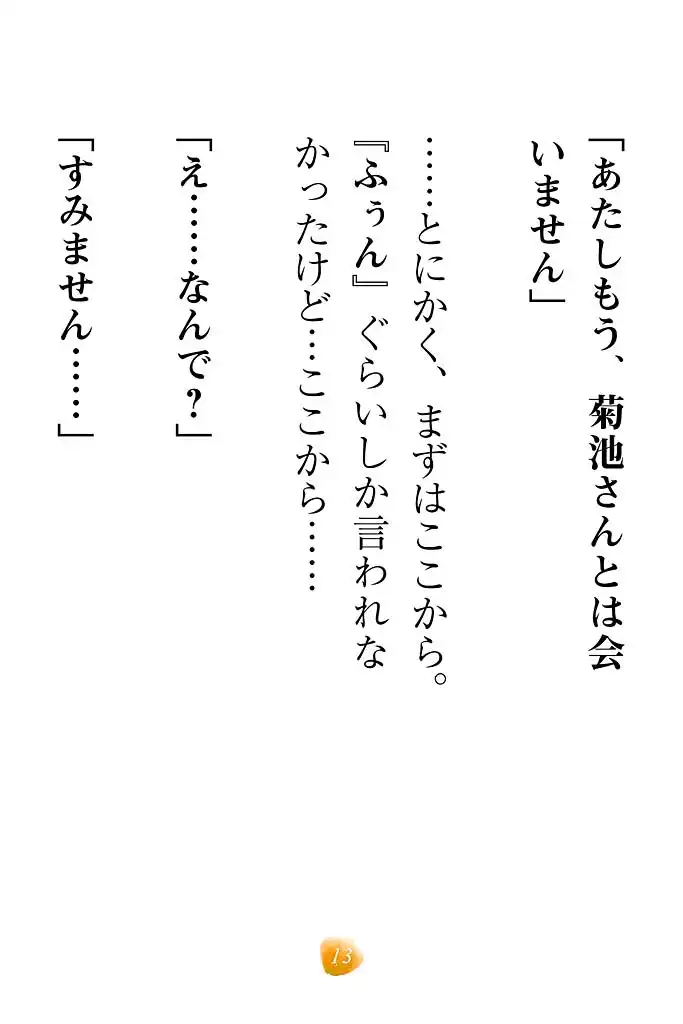 「あたしもう、菊池さんとは会
いません」
……とにかく、まずはここから。
『ふぅん』ぐらいしか言われな
かったけど…ここから……
「え……なんで？」
「すみません……」
13